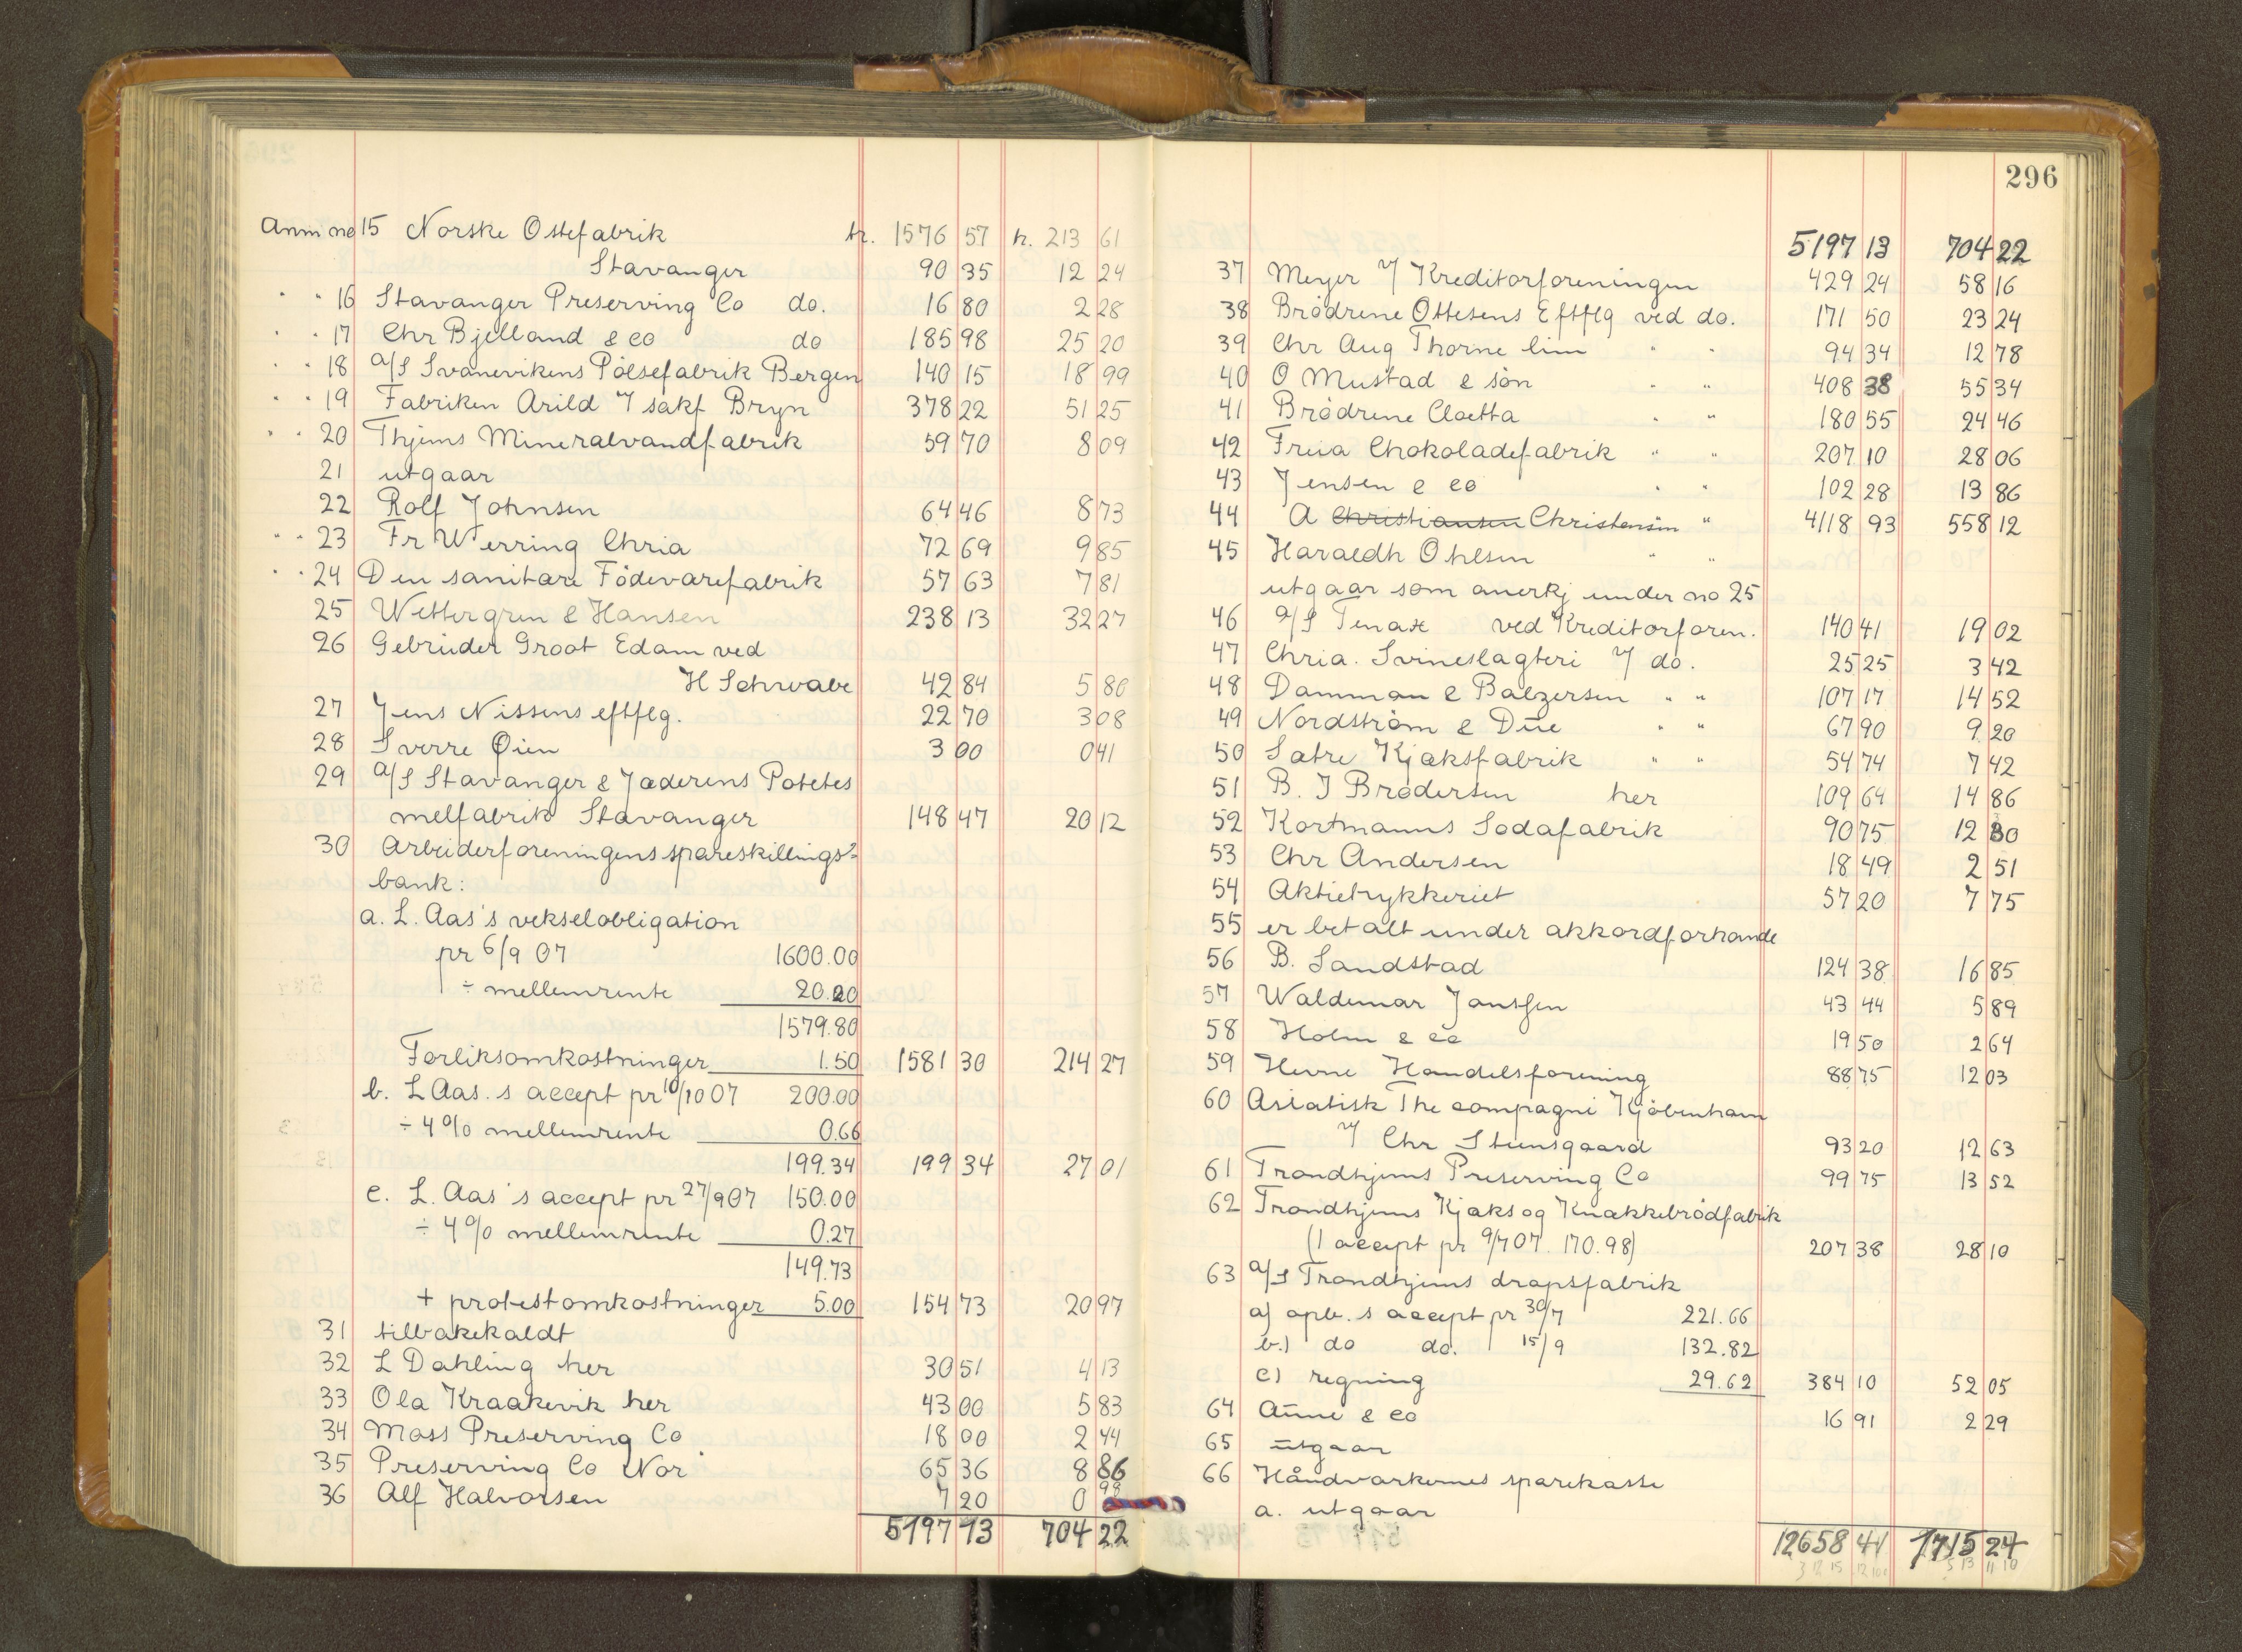 Anm no 15 Norske Ostefabrik kr. 1576 57 kr. 213 61
Stavanger 90 35 12 24
" " 16 Stavanger Preserving Co do. 16 80 2 28
" " 17 Chr Bjelland & co do 185 98 25 20
" " 18 a/s Svanevikens Pölsefabrik Bergen 140 15 18 99
" " 19 Fabriken Arild v/ sakf Bryn 378 22 51 25
" " 20 Thjems Mineralvandfabrik 59 70 8 09
21 utgaar
22 Rolf Johnsen 64 46 8 73
" " 23 Fr Werring Chria 72 69 9 85
" " 24 Den sanitære Födevarefabrik 57 63 7 81
25 Wettergren & Hansen 238 13 32 27
26 Gebrüder Groot Edam ved
H Schwabe 42 84 5 80
27 Jens Nissens eftflg. 22 70 3 08
28 Sverre Øien 3 00 0 41
29 a/s Stavanger & Jæderens Potetes
melfabrik Stavanger 148 47 20 12
30 Arbeiderforeningens spareskillings-
bank:
a. L. Aas's vekselobligation
pr 6/9 07 1600.00
÷ mellemrente 20.20
1579.80
Forliksomkostninger 1.50 1581 30 214 27
b. L Aas.s accept pr 10/10 07 200.00
÷ 4% mellemrente 0.66
199.34 199 34 27 01
c. L. Aas's accept pr 27/9 07 150.00
÷ 4% mellemrente 0.27
149.73
+ protestomkostninger 5.00 154 73 20 97
31 tilbakekaldt
32 L Dahling her 30 51 4 13
33 Ola Kraakevik her 43 00 5 83
34 Moss Preserving Co 18 00 2 44
35 Preserving Co Nor 65 36 8 86
36 Alf Halvorsen 7 20 0 98
5197 13 704 22
296
5197 13 704 22
37 Meyer v/ Kreditorforeningen 429 24 58 16
38 Brödrene Ottesens Eftflg ved do. 171 50 23 24
39 Chr Aug Thorne lim " " 94 34 12 78
40 O Mustad & sön " " 408 38 55 34
41 Brödrene Cloetta " " 180 55 24 46
42 Freia Chokoladefabrik " " 207 10 28 06
43 Jensen & co " " 102 28 13 86
44 A Christiansen Christensen " 4118 93 558 12
45 Haraldh Ohlsen " "
utgaar som anerkj under no 25
46 a/s Tenax ved Kreditorforen. 140 41 19 02
47 Chria. Svineslagteri v/ do. 25 25 3 42
48 Damman & Balzersen " " 107 17 14 52
49 Nordström & Düe " " 67 90 9 20
50 Sætre Kjæksfabrik " " 54 74 7 42
51 B. J Brodersen her 109 64 14 86
52 Kortmanns Sodafabrik 90 75 12 30
53 Chr Andersen 18 49 2 51
54 Aktietrykkeriet 57 20 7 75
55 er betalt under akkordforhande
56 B. Sandstad 124 38 16 85
57 Waldemar Janssen 43 44 5 89
58 Holm & co 19 50 2 64
59 Hevne Handelsforening 88 75 12 03
60 Asiatisk The compagni Kjöbenhavn
v/ Chr Steensgaard 93 20 12 63
61 Trondhjems Preserving Co 99 75 13 52
62 Trondhjems Kjæks og Knækkebrödfabrik
(1 accept pr 9/7 07. 170.98) 207 38 28 10
63 a/s Trondhjems dropsfabrik
a) opb.s accept pr 30/7 221.66
b.) do do. 15/9 132.82
c) regning 29.62 384 10 52 05
64 Aune & co 16 91 2 29
65 utgaar
66 Håndværkernes sparekasse
a. utgaar
12658 41 1715 24